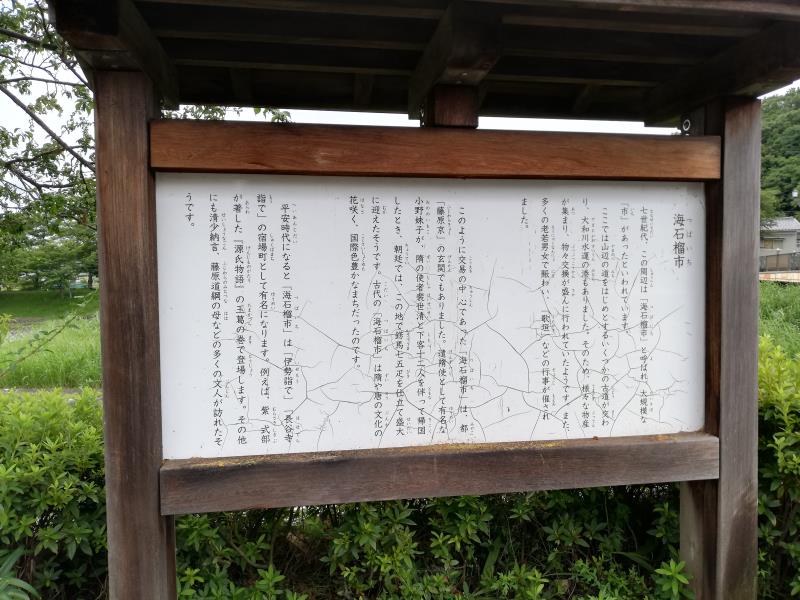 海石榴市
七世紀代、この周辺は「海石榴市」と呼ばれ、大規模な
「市」があったといわれています。
ここでは山辺の道をはじめとするいくつかの古道が交わ
り、大和川水運の港もありました。そのため、様々な物産
が集まり、物々交換が盛んに行われていたようです。また、
多くの老若男女で賑わい、「歌垣」などの行事が催され
ました。
このように交易の中心であった「海石榴市」は、都
「藤原京」の玄関でもありました。遣隋使として有名な
小野妹子が、隋の使者裴世清と下客十二人を伴って帰国
したとき、朝廷では、この地で飾馬七五疋を仕立て盛大
に迎えたそうです。古代の「海石榴市」は隋や唐の文化の
花咲く、国際色豊かなまちだったのです。
平安時代になると「海石榴市」は「伊勢詣で」「長谷寺
詣で」の宿場町として有名になります。例えば、紫式部
が著した『源氏物語』の玉葛の巻で登場します。その他
にも清少納言、藤原道綱の母などの多くの文人が訪れたそ
うです。